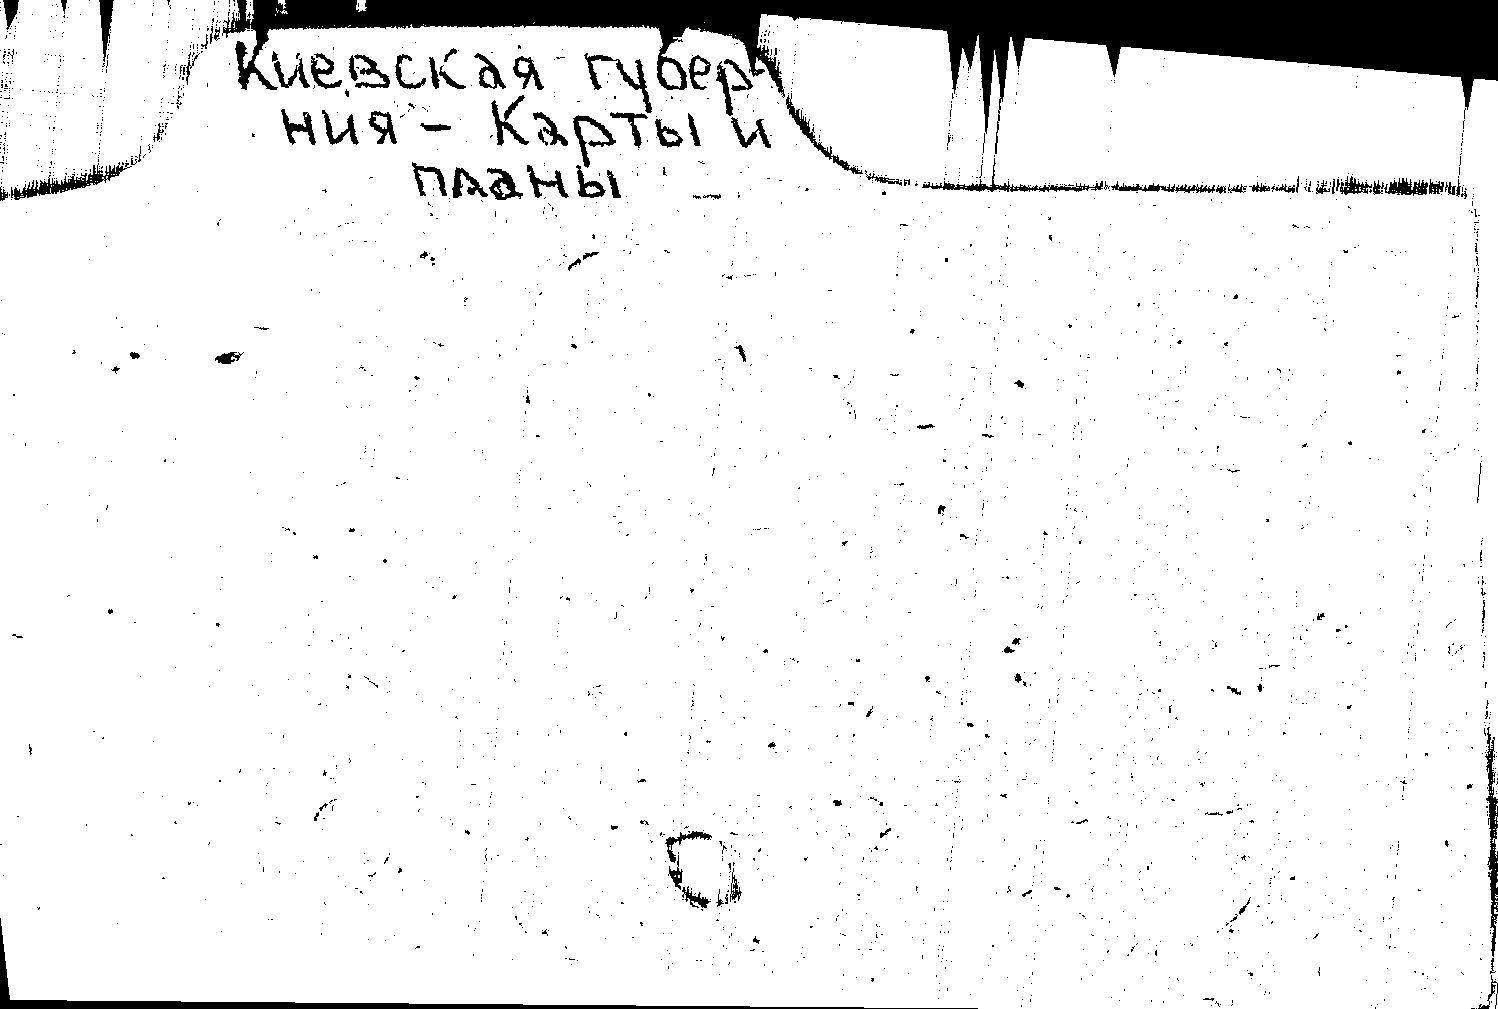 Киевская губер-
ния - Карты и
планы